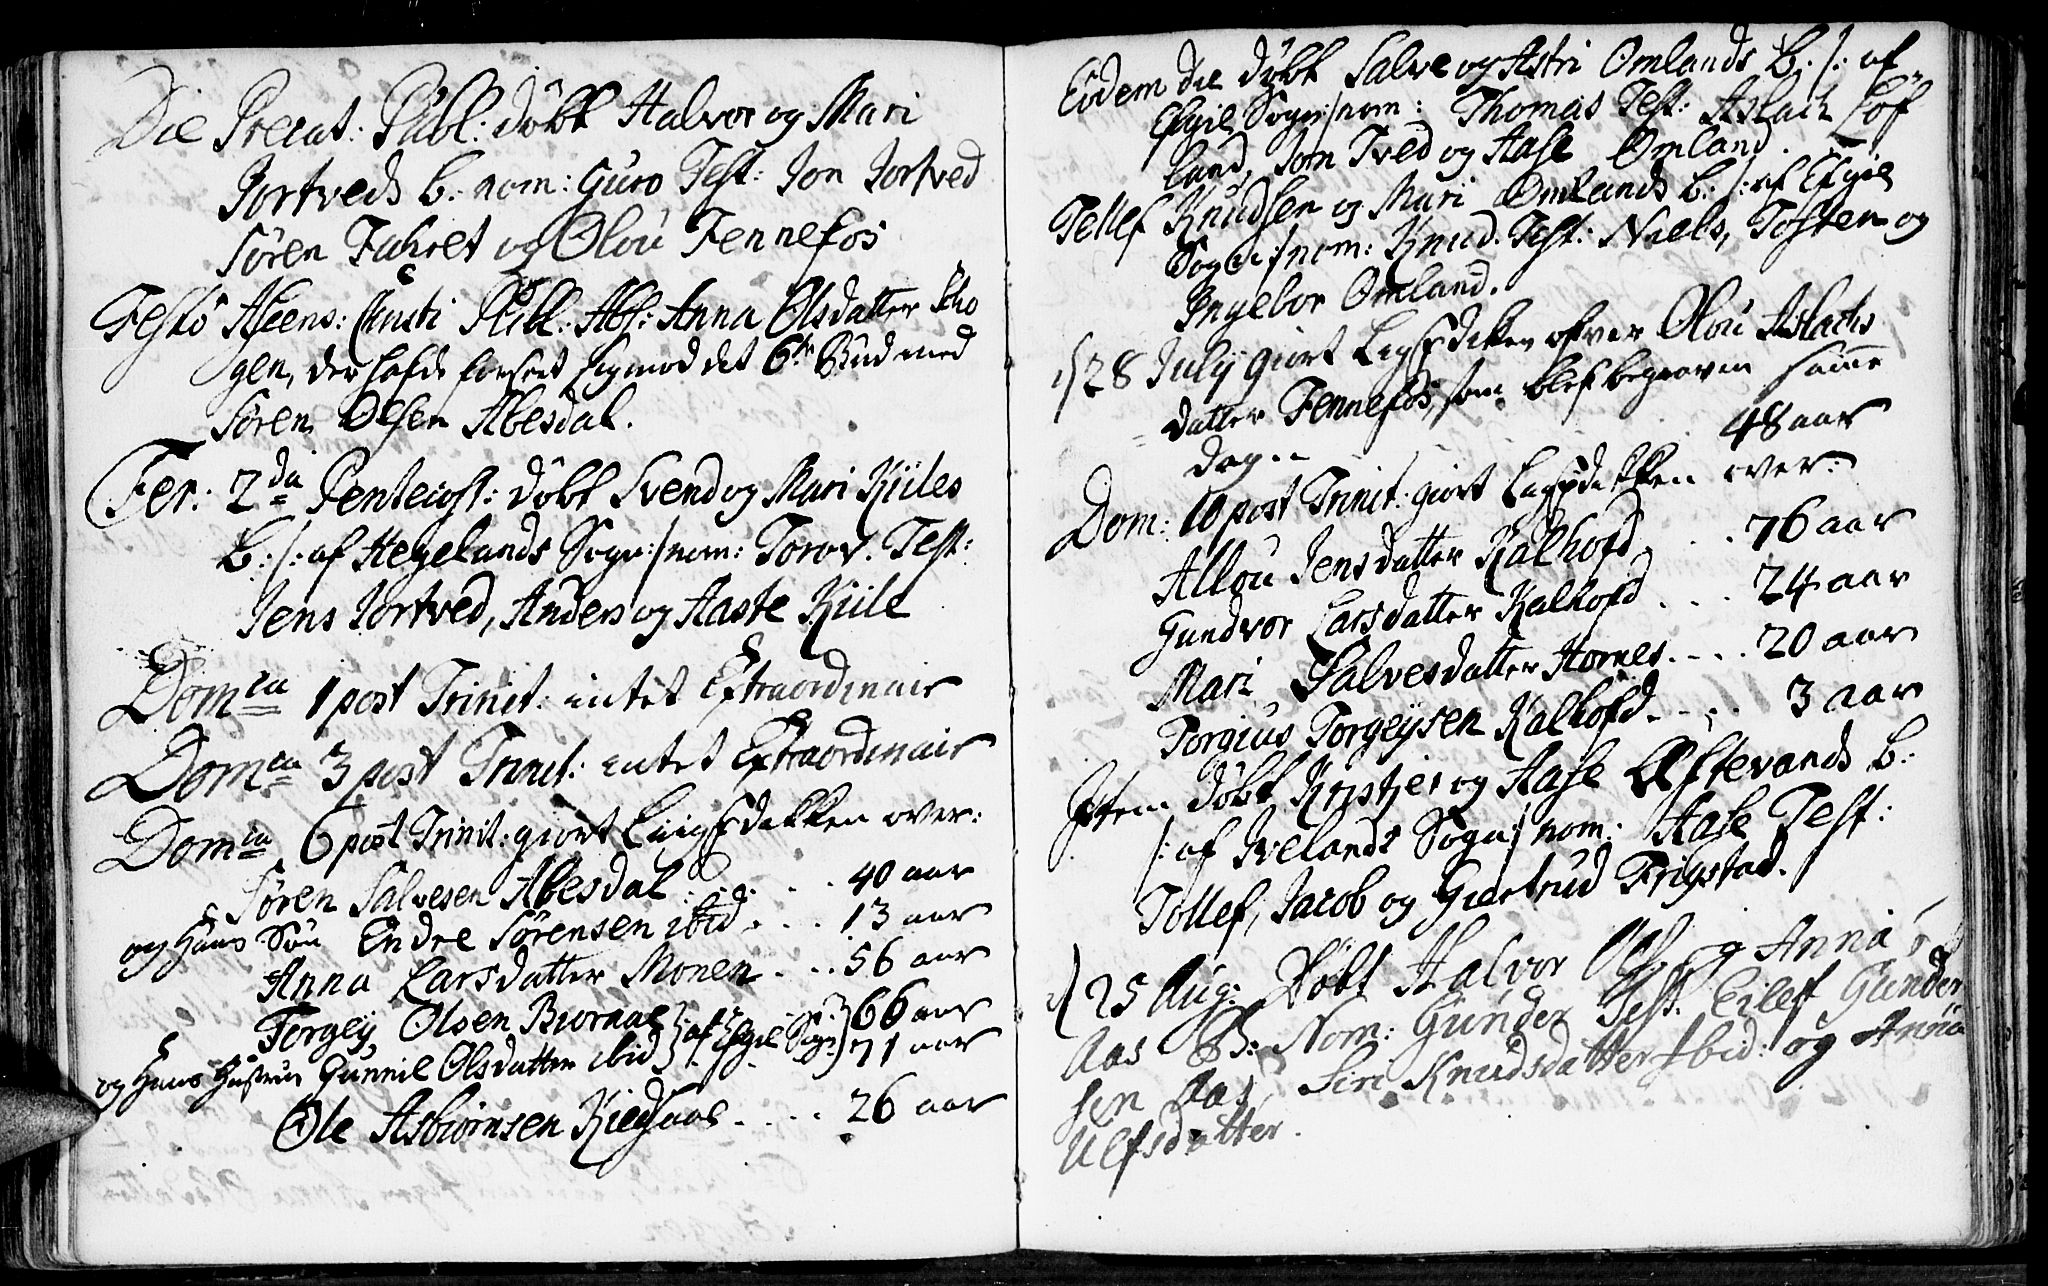 Die Precat: Publ: döbt Halvor og Mari
Jortveds b: nom: Guro Test: Jon Jortved
Sören Fahret og Olou Fennefos
Festo Ascens: Christi Publ. Abs: Anna Olsdatter Sko
gen, der hafde forseet sig mod det 6te Bud med
Sören Olsen Abesdal.
Fer: 2da Pentecost: döbt Svend og Mari Kiiles
B: /: af Hegelands Sogn :/ nom: Torov. Test:
Jens Jortved, Anders og Aaste Kiile
Domca 1 post Trinit: intet Extraordinair
Domca 3 post Trinit: intet Extraordinair
Domca 6 post Trinit: giort Liigsdekken over:
Sören Salvesen Abesdal . . . 40 aar
og Hans Sön Endre Sörensen ibid . . . 13 aar
Anna Larsdatter Monen . . . 56 aar
Torgey Olsen Biornaas } af Efgil Sogn } 66 aar
og Hans Hustrue Gunnil Olsdatter ibid } 71 aar
Ole Asbiörnsen Kiedsaas . . . . 26 aar
Eidem die döbt Salve og Astri Omlands B. /: af
Efgil Sogn :/ nom: Thomas Test: Aslach Löf
land, Jon Tved og Aase Omland.
Tellef Knudsen og Mari Omlands b: /: af Efgiel
Sogn :/ nom: Knud. Test: Niels, Tosten og
Ingebor Omland.
d 28 Julij giort Ligsdekken ofver Olou Aslachs
datter Fennefos, som blef begraven samme
Dag . . 48 aar
Dom: 10 post Trinit: giort Ligsdekken over:
Allou Jensdatter Kalhofd . . . 76 aar
Gundvor Larsdatter Kalhofd . . . 24 aar
Mari Salvesdatter Hornes . . . . 20 aar
Torgius Torgeysen Kalhofd . . . . 3 aar
Item döbt Kristjer og Aase Oftevands b:
/: af Ivelands Sogn :/ nom: Aase Test:
Tollef, Jacob og Giertrud Frigstad.
d 25 Aug: Döbt Halvor og Anna
Aas B: Nom: Gunder Test: Eilef Gunder
sen Aas, Siri Knudsdatter ibid: og Anna
Ulfsdatter.